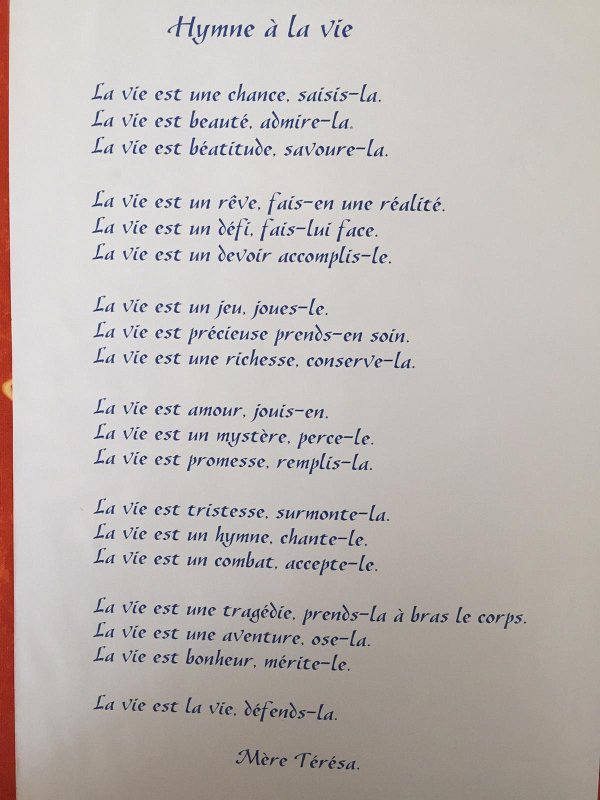 Hymne à la vie
La vie est une chance, saisis-la.
La vie est beauté, admire-la.
La vie est béatitude, savoure-la.
La vie est un rêve, fais-en une réalité.
La vie est un défi, fais-lui face.
La vie est un devoir accomplis-le.
La vie est un jeu, joues-le.
La vie est précieuse prends-en soin.
La vie est une richesse, conserve-la.
La vie est amour, jouis-en.
La vie est un mystère, perce-le.
La vie est promesse, remplis-la.
La vie est tristesse, surmonte-la.
La vie est un hymne, chante-le.
La vie est un combat, accepte-le.
La vie est une tragédie, prends-la à bras le corps.
La vie est une aventure, ose-la.
La vie est bonheur, mérite-le.
La vie est la vie, défends-la.
Mère Térésa.